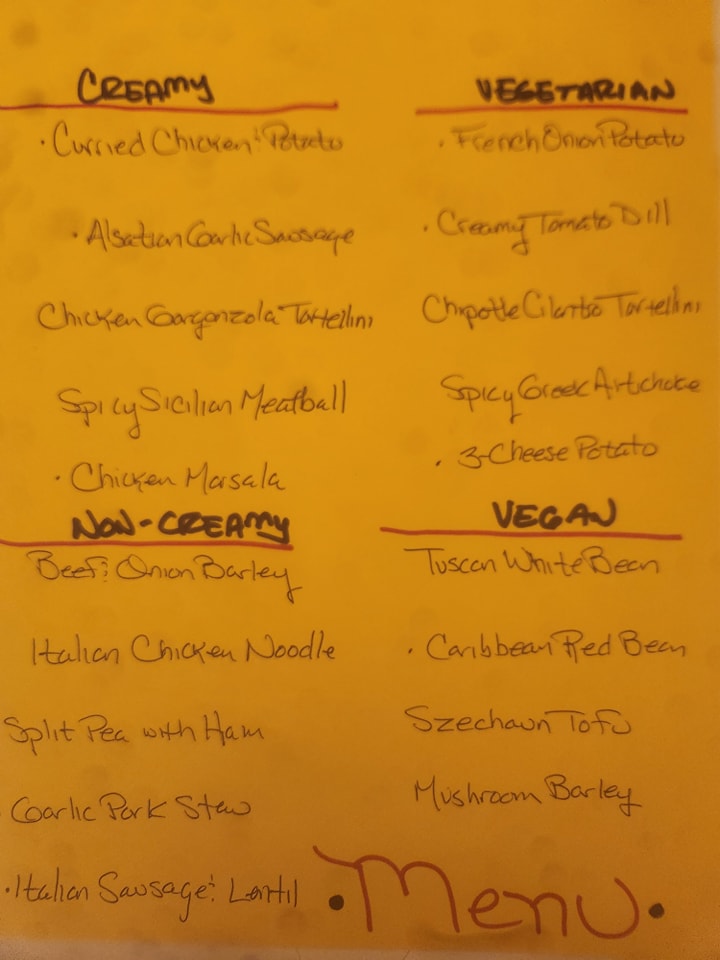 CREAMY
· Curried Chicken & Potato
· Alsatian Garlic Sausage
Chicken Gorgonzola Tortellini
Spicy Sicilian Meatball
· Chicken Marsala
NON-CREAMY
Beef & Onion Barley
Italian Chicken Noodle
Split Pea with Ham
Garlic Pork Stew
· Italian Sausage & Lentil
VEGETARIAN
· French Onion Potato
· Creamy Tomato Dill
Chipotle Cilantro Tortellini
Spicy Greek Artichoke
· 3-Cheese Potato
VEGAN
Tuscan White Bean
· Caribbean Red Bean
Szechaun Tofu
Mushroom Barley
· Menu ·